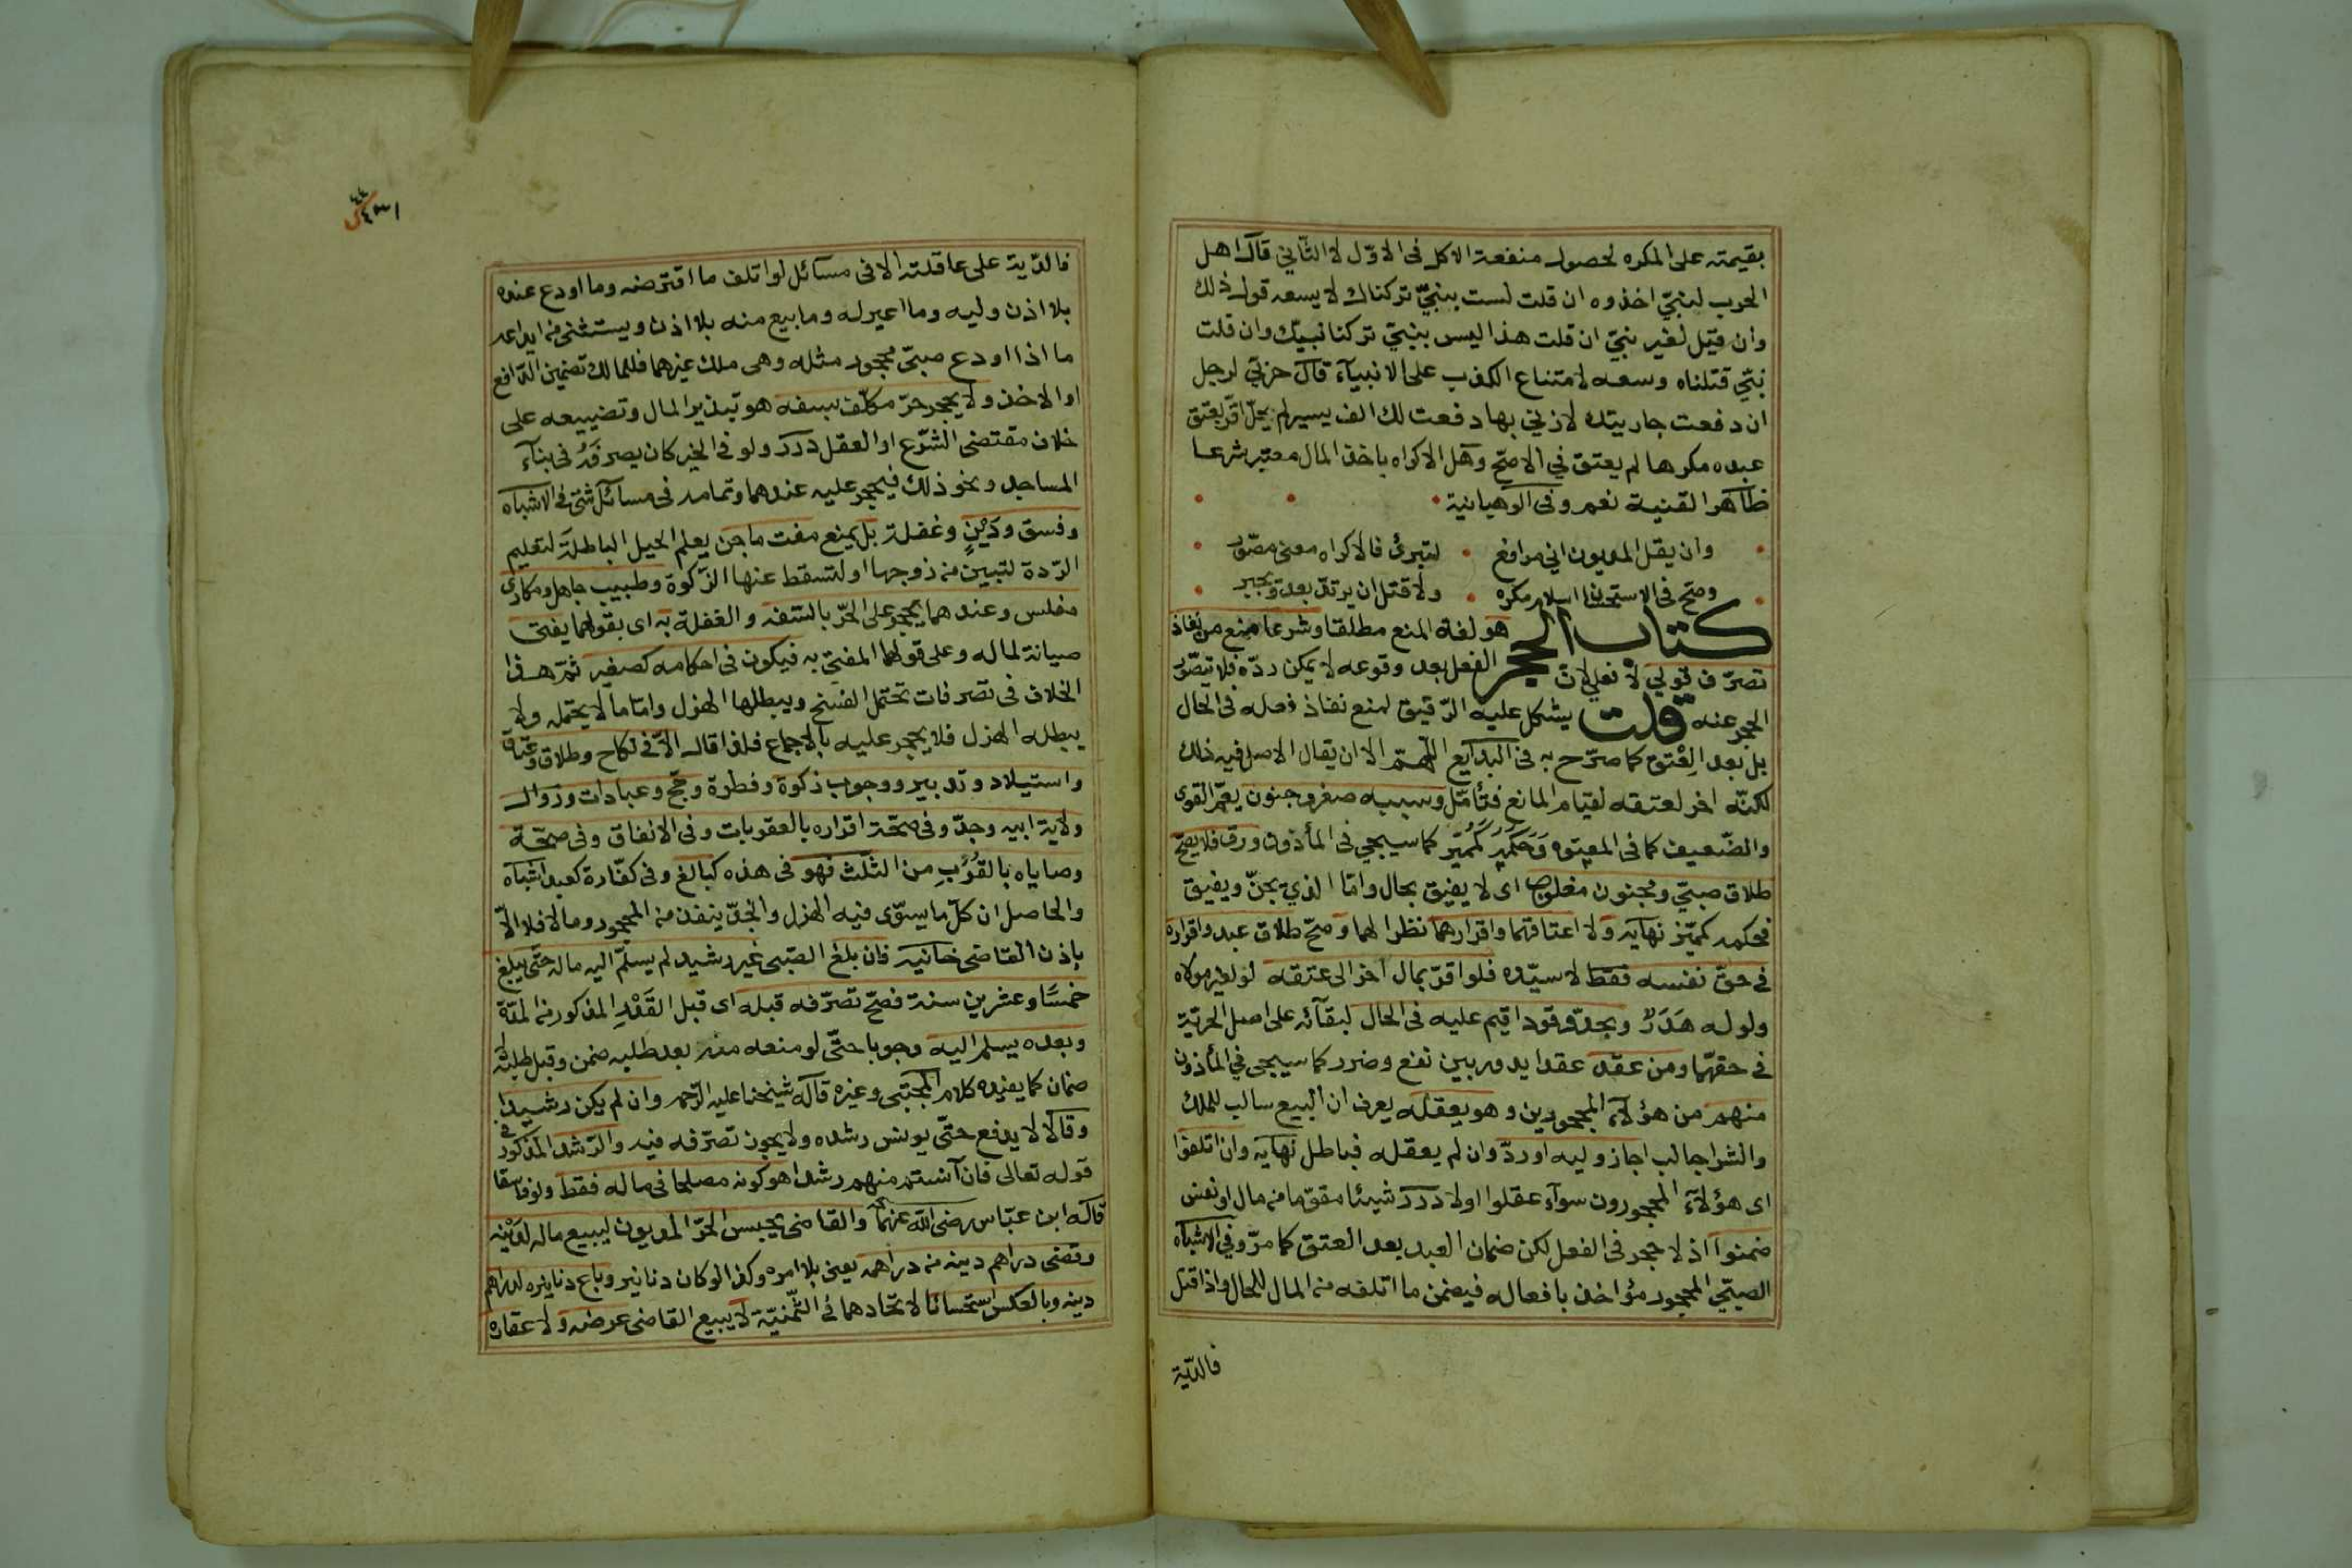 بقيمته على المكره لحصول منفعة الاكل فى الاوّل لا الثّاني قال اهل
الحرب لنبيّ اخذوه ان قلت لست بنبيّ تركناك لا يسعه قول ذلك
وان قيل لغير نبيّ ان قلت هذا ليس بنبيّ تركنا نبيّك وان قلت
نبيّ قتلناه وسعه لامتناع الكذب على الانبيآء قال حربيّ لرجل
ان دفعت جاريتك لازني بها دفعت لك الف يسير لم يحلّ اقرّ بعتق
عبده مكرها لم يعتق في الاصحّ وهل الاكراه باخذ المال معتبر شرعا
ظاهر القنية نعم وفى الوهبانية
وان يقل المديون اني مرافع لتبرئ فالاكراه معنى مصّور
وصّح فى الاستحسان اسلام مكره ولا قتل ان يرتدّ بعد ويجبر
كتاب الحجر هو لغة المنع مطلقا وشرعا منع من نفاذ
تصرّف قولي لا فعلي لانّ الفعل بعد وقوعه لا يمكن ردّه فلا يتصّور
الحجر عنه قلت يشكل عليه الرّقيق لمنع نفاذ فعله فى الحال
بل بعد العتق كما صرّح به فى البدايع اللّهمّ الا ان يقال الاصل فيه ذلك
لكنّه اخر لعتقه لقيام المانع فتأمّل وسببه صغر وجنون يعمّ القوى
والضّعيف كما فى المعتوه وحكمه كمميّز كما سيجي فى المأذون ورق فلا يصّح
طلاق صبيّ ومجنون مغلوب اى لا يفيق بحال وامّا الذي يجنّ ويفيق
فحكمه كمميّز نهايه ولا اعتاقهما واقرارهما نظرا لهما وصّح طلاق عبد واقراره
في حق نفسه فقط لا سيّده فلو اقرّ بمال اخر الى عتقه لو لغير مولاه
ولو له هَدَرٌ وبحدّ وقود اقيم عليه فى الحال لبقآئه على اصل الحرّيّة
في حقهّما ومن عقد عقدا يدور بين نفع وضرر كما سيجى في المأذون
منهم من هؤلآء المحجورين وهو يعقله يعرف ان البيع سالب للملك
والشرا جالب اجاز وليه او ردّ وان لم يعقله فباطل نهايه وان اتلفوا
اى هؤلآء المحجورون سوآء عقلوا اولا درر شيئا مقوّما من مال او نفس
ضمنوا اذ لا حجر فى الفعل لكن ضمان العبد بعد العتق كما مرّ وفي الاشباه
الصبيّ المحجور مؤاخذ بافعاله فيضمن ما اتلفه من المال للحال واذا قتل
فالديّة
فالدّية على عاقلته الا فى مسآئل لو اتلف ما اقترضه وما اودع عنده
بلا اذن وليه وما اعير له وما بيع منه بلا اذن ويستثنى من ايداعه
ما اذا اودع صبىّ محجور مثله وهى ملك غيرهما فللمالك تضمين الدّافع
او الاخذ ولا يحجر حرّ مكلّف بسفه هو تبذير المال وتضييعه على
خلاف مقتضى الشّرع او العقل درر ولو فى الخير كان يصرفه فى بنآء
المساجد ونحو ذلك فيحجر عليه عندهما وتمامه فى مسآئل شتى فى الاشباه
وفسق ودَيْنٍ وغفلة بل يمنع مفت ماجن يعلم الحيل الباطلة كتعليم
الرّدة لتبين من زوجها او لتسقط عنها الزّكوة وطبيب جاهل ومكارى
مفلس وعندهما يحجر على الحرّ بالسّفه والغفلة به اى بقولهما يفتى
صيانة لماله وعلى قولهما المفتى به فيكون فى احكامه كصغير ثمّ هذا
الخلاف فى تصرفات تحتمل الفسخ ويبطلها الهزل وامّا ما لا يحتمله ولا
يبطله الهزل فلا يحجر عليه بالاجماع فلذا قال الّا فى نكاح وطلاق وعتاق
واستيلاد وتدبير ووجوب زكوة وفطرة وحجّ وعبادات وزوال
ولاية ابيه وجدّ وفى صحّة اقراره بالعقوبات وفى الانفاق وفى صحّة
وصاياه بالقُرَبِ من الثلث فهو فى هذه كبالغ وفى كفّارة كعبد اشباه
والحاصل ان كلّ ما يستوى فيه الهزل والجدّ ينفذ من المحجور وما لا فلا الّا
بإذن القاضى خانيه فان بلغ الصّبى غير رشيد لم يسلّم اليه ماله حتّى يبلغ
خمسًا وعشرين سنة فصّح تصرّفه قبله اى قبل القَدْرِ المذكور من المدّة
وبعده يسلم اليه وجوبا حتّى لو منعه منه بعد طلبه ضمن وقبل طلبه لا
ضمان كما يفيده كلام المجتبى وغيره قاله شيخنا عليه الرّحمه وان لم يكن رشيدا
وقالا لا يدفع حتّى يونس رشده ولا يجوز تصرّفه فيه والرّشد المذكور في
قوله تعالى فان آنستم منهم رشدا هو كونه مصلحا فى ماله فقط ولو فاسقا
قاله ابن عبّاس رضى اللّه عنهما والقاضى يحبس الحرّ المديون ليبيع ماله لدَيْنه
وقضى دراهم دينه من دراهمه يعنى بلا امره وكذا لو كان دنانير وباع دنانيره لدراهم
دينه وبالعكس استحسانا لاتحادهما فى الثّمنيّة لا يبيع القاضى عرضه ولا عقاره